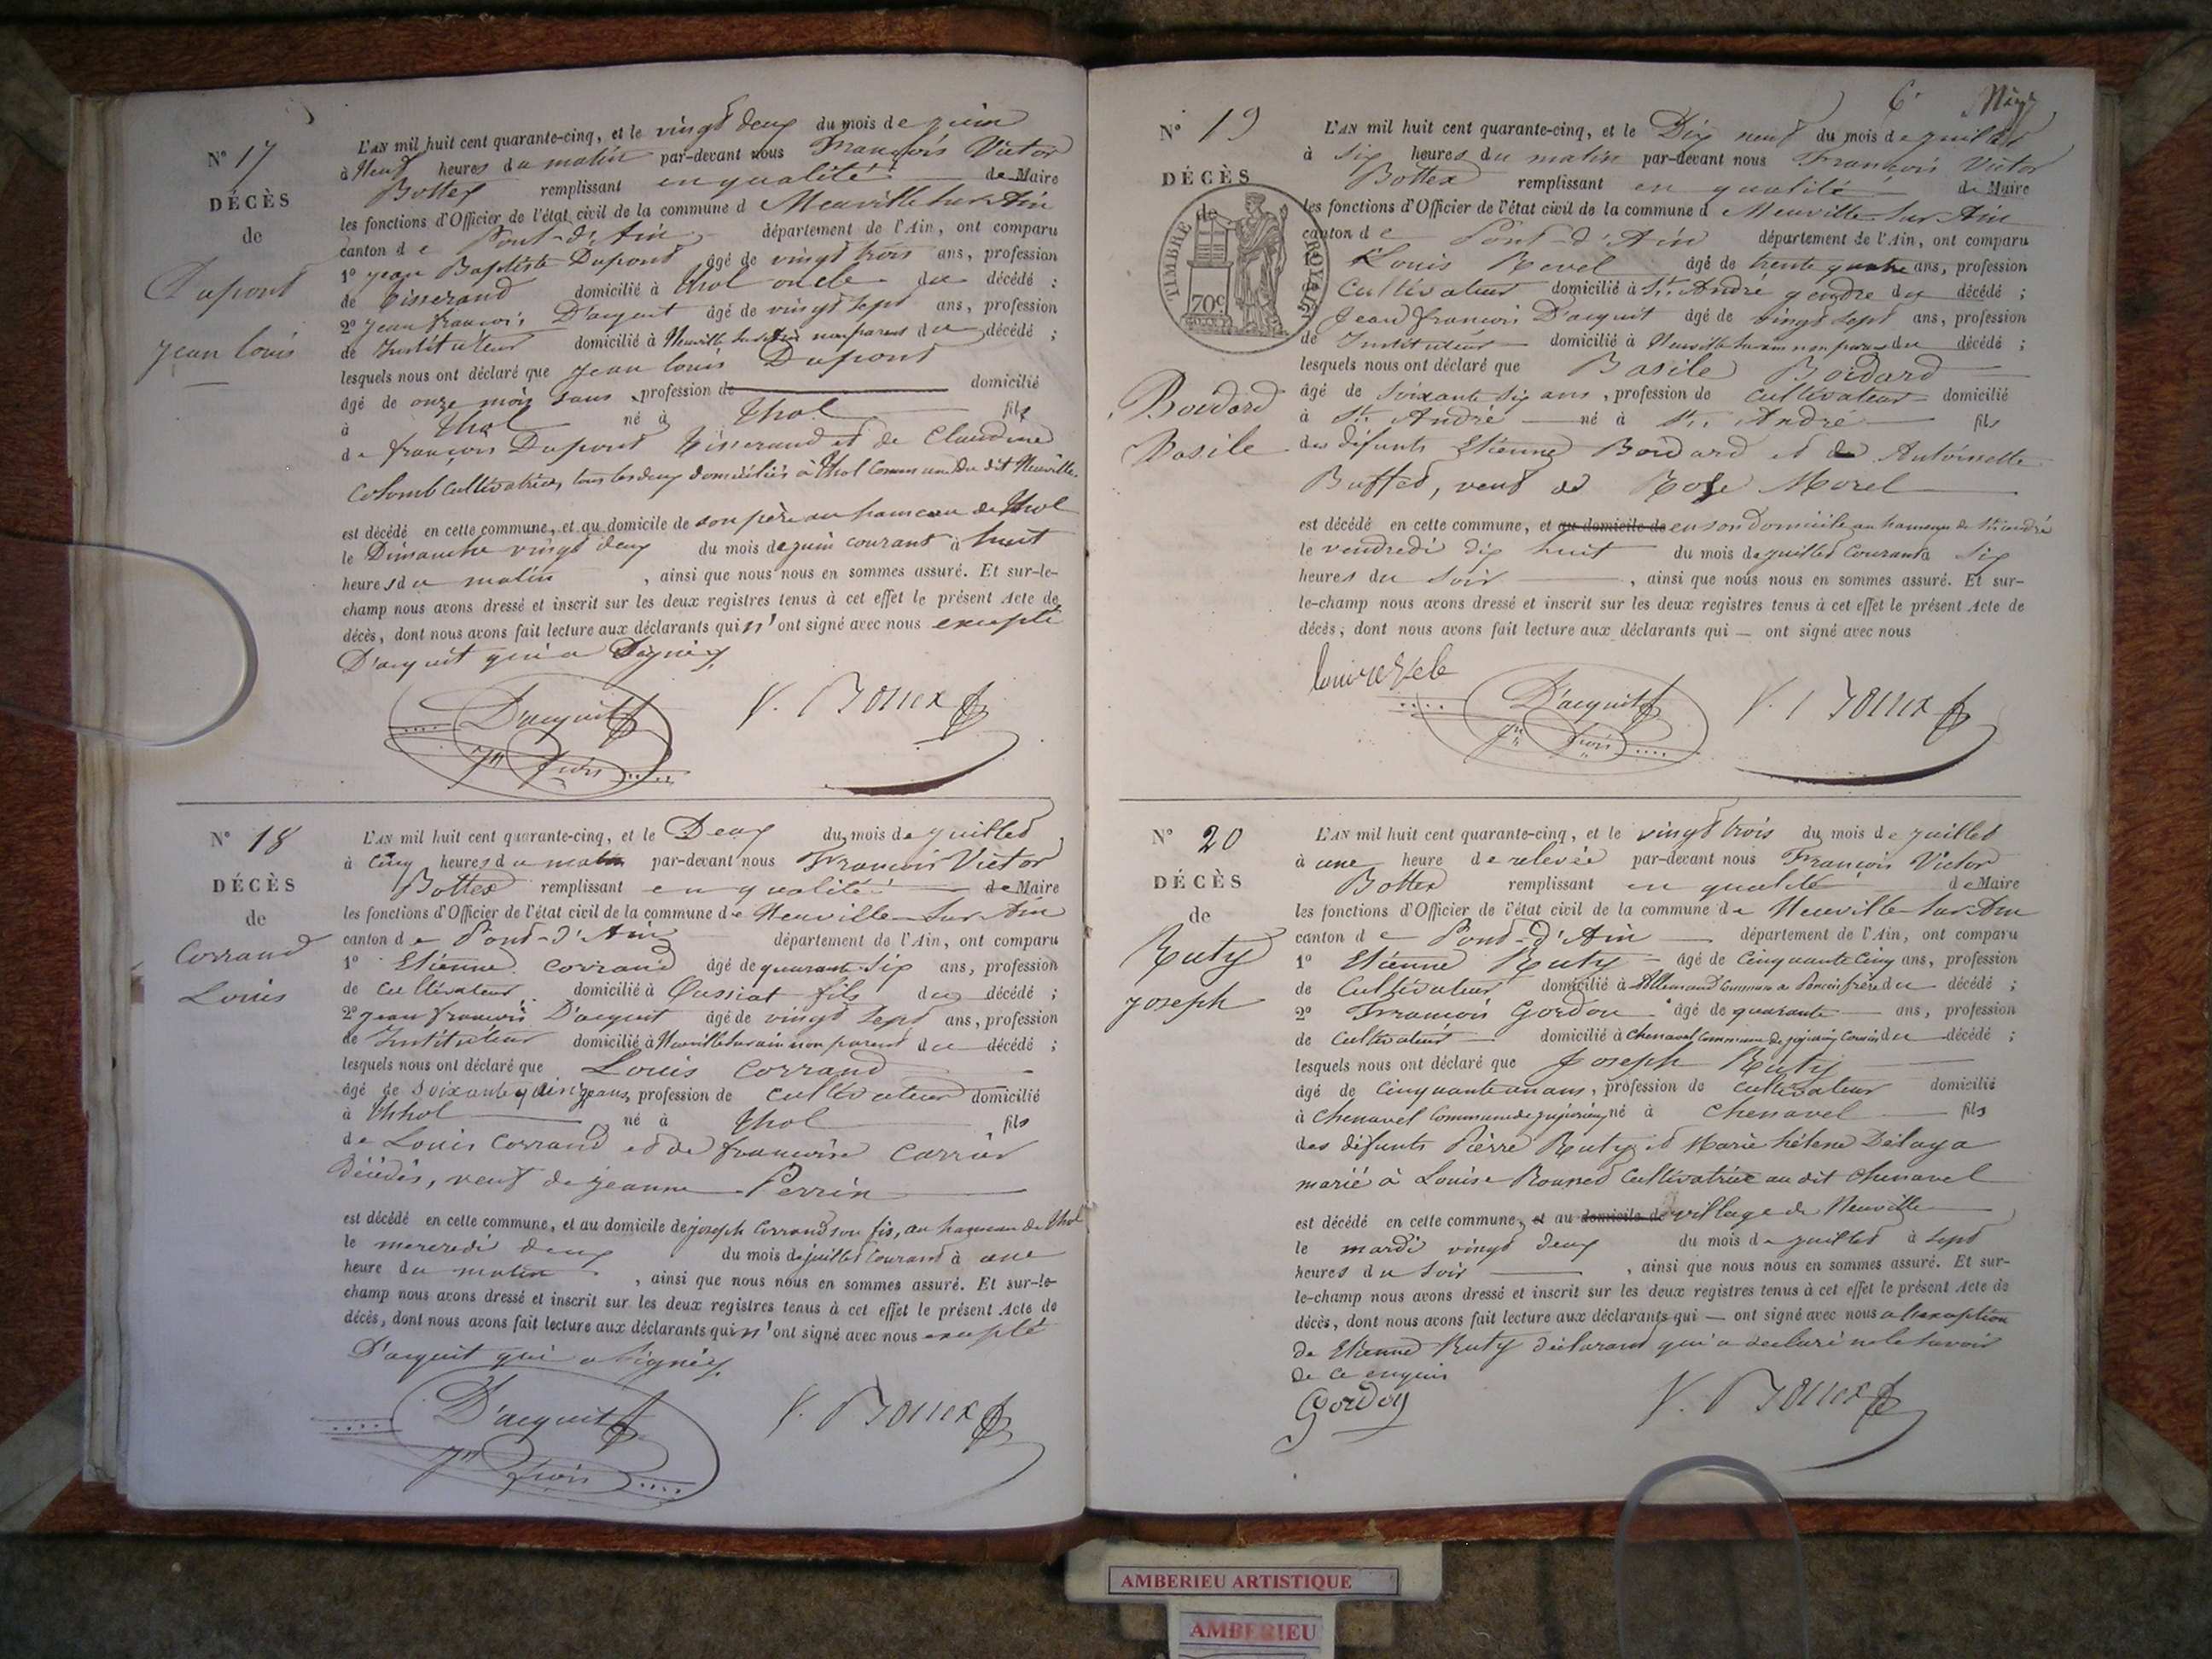 N° 17
DÉCÈS
de
Dupont
jean louis
L'AN mil huit cent quarante-cinq, et le vingt deux du mois de juin
à Neuf heures du matin par-devant nous François Victor
Bottex remplissant en qualité de Maire
les fonctions d'Officier de l'état civil de la commune d Neuville sur Ain
canton de Pont-d'Ain département de l'Ain, ont comparu
1° jean Baptiste Dupont âgé de vingt trois ans, profession
de tisserand domicilié à thol oncle du décédé ;
2° jean françois D'acquit âgé de vingt sept ans, profession
de Instituteur domicilié à Neuville sur Ain non parent du décédé ;
lesquels nous ont déclaré que jean louis Dupont
âgé de onze mois sans profession de domicilié
à thol né à thol fils
de françois Dupont tisserand et de Claudine
Colomb cultivatrice, tous les deux domiciliés à thol commune du dit Neuville
est décédé en cette commune, et au domicile de son père au hameau de thol
le Dimanche vingt deux du mois de juin courant à huit
heures du matin , ainsi que nous nous en sommes assuré. Et sur-le-
champ nous avons dressé et inscrit sur les deux registres tenus à cet effet le présent Acte de
décès, dont nous avons fait lecture aux déclarants qui n'ont signé avec nous excepté
D'acquit qui a signé
D'acquit V. Bottex
jn fois
N° 18
DÉCÈS
de
Corrand
Louis
L'AN mil huit cent quarante-cinq, et le Deux du mois de juillet
à cinq heures du matin par-devant nous François Victor
Bottex remplissant en qualité de Maire
les fonctions d'Officier de l'état civil de la commune de Neuville sur Ain
canton de Pont-d'Ain département de l'Ain, ont comparu
1° Etienne Corrand âgé de quarante six ans, profession
de cultivateur domicilié à Oussiat fils du décédé ;
2° jean françois D'acquit âgé de vingt sept ans, profession
de Instituteur domicilié à Neuville sur ain non parent du décédé ;
lesquels nous ont déclaré que Louis Corrand
âgé de soixante quinze ans, profession de cultivateur domicilié
à thol né à thol fils
de Louis Corrand et de françoise Carrier
décédés, veuf de jeanne Perrin
est décédé en cette commune, et au domicile de joseph Corrand son fis, au hameau de thol
le mercredi deux du mois de juillet courant à une
heure du matin , ainsi que nous nous en sommes assuré. Et sur-le-
champ nous avons dressé et inscrit sur les deux registres tenus à cet effet le présent Acte de
décès, dont nous avons fait lecture aux déclarants qui n'ont signé avec nous excepté
D'acquit qui a signé
D'acquit V. Bottex
jn fois
6e
N° 19
DÉCÈS
de
TIMBRE ROYAL
70c
Boidard
Basile
L'AN mil huit cent quarante-cinq, et le Dix neuf du mois de juillet
à six heures du matin par-devant nous François Victor
Bottex remplissant en qualité de Maire
les fonctions d'Officier de l'état civil de la commune d Neuville sur Ain
canton de Pont-d'Ain département de l'Ain, ont comparu
Louis Revel âgé de trente quatre ans, profession
cultivateur domicilié à St. André gendre du décédé ;
Jean françois D'acquit âgé de vingt sept ans, profession
de Instituteur domicilié à Neuville sur ain non parent du décédé ;
lesquels nous ont déclaré que Basile Boidard
âgé de soixante six ans, profession de cultivateur domicilié
à St. André né à St. André fils
des défunts Etienne Boidard et de Antoinette
Buffet, veuf de Rose Morel
est décédé en cette commune, et au domicile de en son domicile au hameau de St. andré
le vendredi dix huit du mois de juillet courant à six
heures du soir , ainsi que nous nous en sommes assuré. Et sur-
le-champ nous avons dressé et inscrit sur les deux registres tenus à cet effet le présent Acte de
décès, dont nous avons fait lecture aux déclarants qui — ont signé avec nous
D'acquit V. Bottex
jn fois
N° 20
DÉCÈS
de
Ruty
joseph
L'AN mil huit cent quarante-cinq, et le vingt trois du mois de juillet
à une heure de relevée par-devant nous François Victor
Bottex remplissant en qualité de Maire
les fonctions d'Officier de l'état civil de la commune de Neuville sur Ain
canton de Pont-d'Ain département de l'Ain, ont comparu
1° Etienne Ruty âgé de cinquante cinq ans, profession
de cultivateur domicilié à Allemand commune de Poncin frère du décédé ;
2° François Gordon âgé de quarante ans, profession
de cultivateur domicilié à chenavel commune de jujurieux cousin du décédé ;
lesquels nous ont déclaré que Joseph Ruty
âgé de cinquante un ans, profession de cultivateur domicilié
à chenavel commune de jujurieux né à chenavel fils
des défunts Pierre Ruty et Marie hélène Delaya
marié à Louise cultivatrice au dit chenavel
est décédé en cette commune, et au domicile de village de Neuville
le mardi vingt deux du mois de juillet à sept
heures du soir , ainsi que nous nous en sommes assuré. Et sur-
le-champ nous avons dressé et inscrit sur les deux registres tenus à cet effet le présent Acte de
décès, dont nous avons fait lecture aux déclarants qui — ont signé avec nous à l'exception
de Etienne Ruty déclarant qui a déclaré ne le savoir
de ce enquis
Gordon V. Bottex
AMBERIEU ARTISTIQUE
AMBERIEU